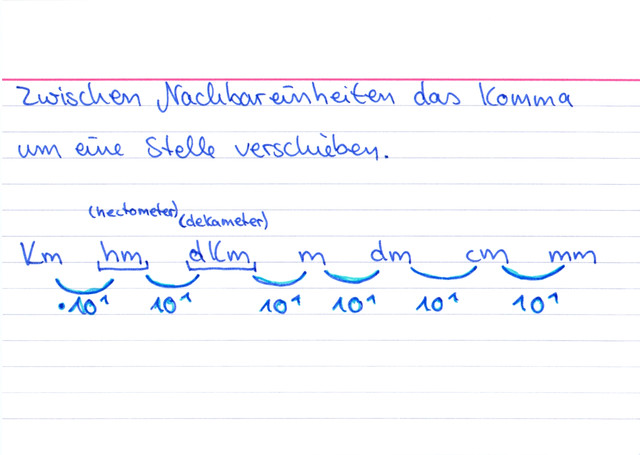 Zwischen Nachbareinheiten das Komma
um eine Stelle verschieben.
(hectometer) (dekameter)
Km hm dKm m dm cm mm
·10¹ 10¹ 10¹ 10¹ 10¹ 10¹